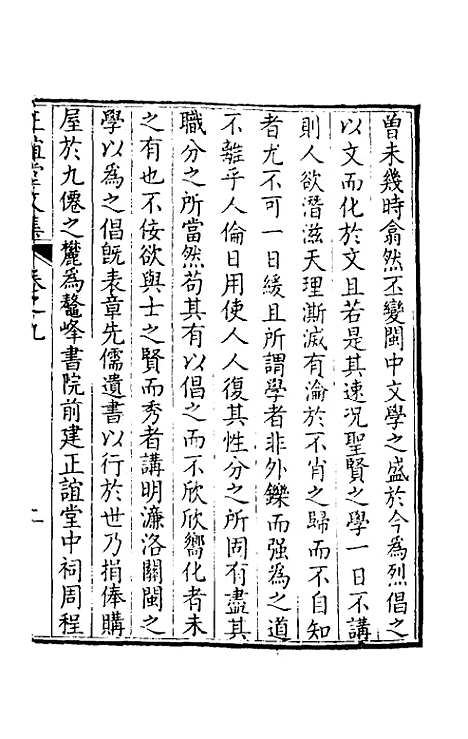 曾未幾時翕然丕變閩中文學之盛於今為烈倡之
以文而化於文且若是其速况聖賢之學一日不講
則人欲潛滋天理澌滅有淪於不肖之歸而不自知
者尤不可一日緩且所謂學者非外鑠而强為之道
不離乎人倫日用使人人復其性分之所固有盡其
職分之所當然苟其有以倡之而不欣欣嚮化者未
之有也不佞欲與士之賢而秀者講明濂洛關閩之
學以為之倡旣表章先儒遺書以行於世乃捐俸購
屋於九僊之麓為鼇峰書院前建正誼堂中祠周程
正誼堂文集 卷之九 二